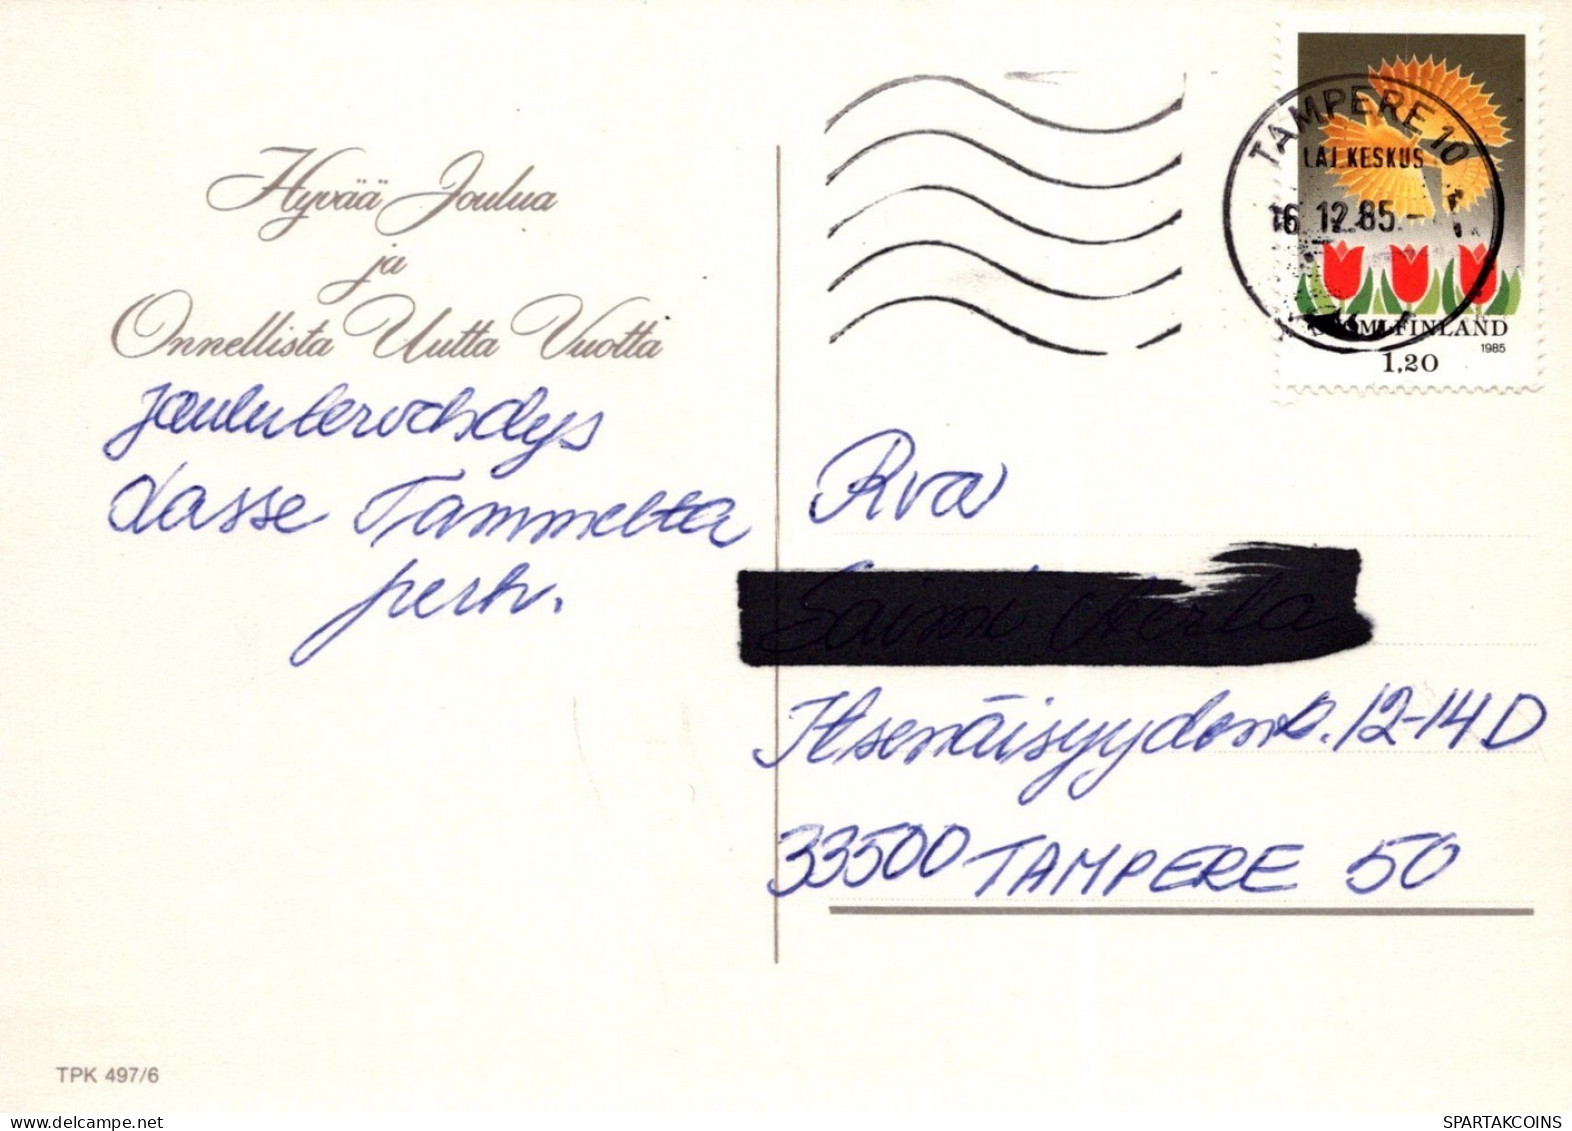 Hyvää Joulua
ja
Onnellista Uutta Vuotta
Joulutervehdys
Lasse Tammelta
perh.
TPK 497/6
TAMPERE 10
LAJ.KESKUS
16.12.85.-
SUOMI-FINLAND
1985
1,20
Rva
Itsenäisyydenk. 12-14 D
33500 TAMPERE 50
SPARTAKCOINS